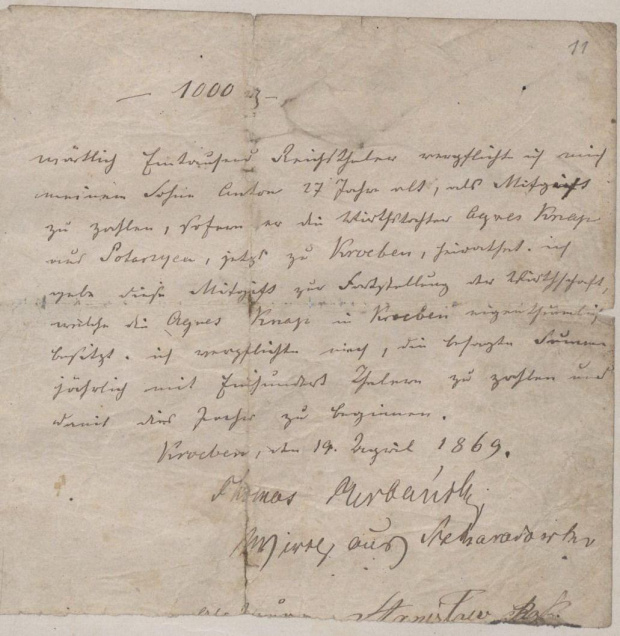 11
— 1000 —
wörtlich Eintausend Reichsthaler verpflicht ich mich
meinem Sohne Anton 27 Jahre alt, als Mitgift
zu zahlen, sofern er die Wirthstochter Agnes Knap
aus Potarzyca, jetzt zu Kroeben, heirathet. ich
gebe diese Mitgift zur Feststellung der Wirthschaft,
welche die Agnes Knap in Kroeben eigenthümlich
besitzt. ich verpflichte mich, die besagte Summe
jährlich mit Einhundert Thalern zu zahlen und
damit dies Jahr zu beginnen.
Kroeben, den 19. April 1869.
Thomas
Wirth aus
Stanisław